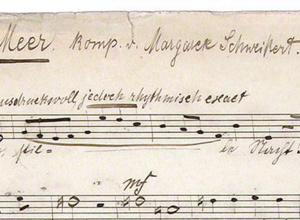 Meer. komp. v. Margarete Schweikert.
usdrucksvoll jedoch rhythmisch exact
stil – le Nacht
mf